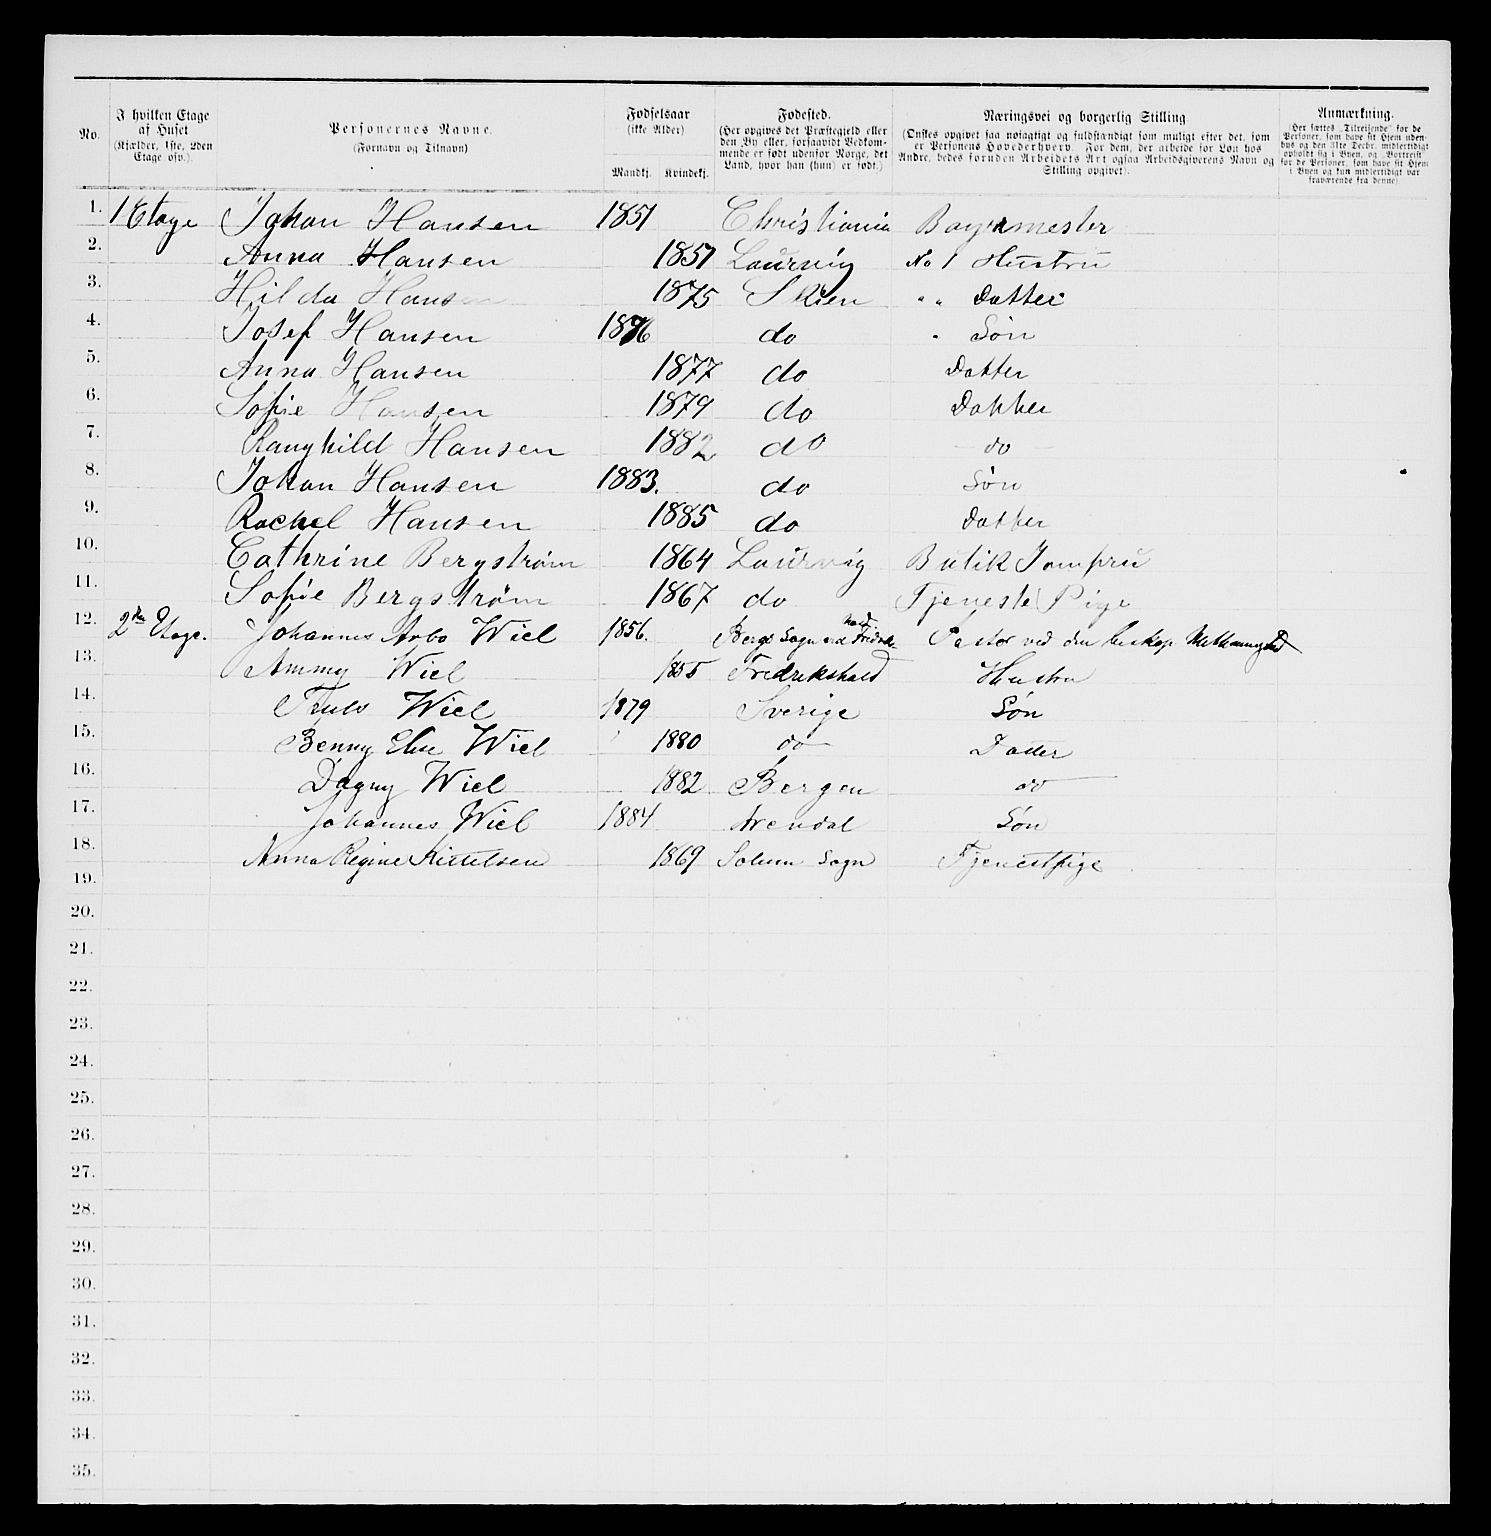 No.
I hvilken Etage af Huset (Kjælder, 1ste, 2den Etage osv.).
Personernes Navne. (Fornavn og Tilnavn)
Fødselsaar (ikke Alder)
Mandkj. Kvindekj.
Fødested. (Her opgives det Præstegjeld eller den By eller, forsaavidt Vedkommende er født udenfor Norge, det Land, hvor han (hun) er født.)
Næringsvei og borgerlig Stilling (Ønskes opgivet saa nøiagtigt og fuldstændigt som muligt efter det, som er Personens Hovederhverv. For dem, der arbeide for Løn hos Andre, bedes foruden Arbeidets Art ogsaa Arbeidsgiverens Navn og Stilling opgivet).
Anmærkning. (Her sættes „Tilreisende" for de Personer, som have sit Hjem udenbys og den 31te Decbr. midlertidigt opholdt sig i Byen, og „Bortreist" for de Personer, som have sit Hjem i Byen og kun midlertidigt var fraværende fra denne)
1. 1 Etage Johan Hansen 1851 Christiania Bagermester
2. Anna Hansen 1851 Laurvig No 1 Hustru
3. Hilda Hansen 1875 Skien " " Datter
4. Josef Hansen 1876 do " Søn
5. Anna Hansen 1877 do Datter
6. Sofie Hansen 1879 do Datter
7. Ranghild Hansen 1882 do do
8. Johan Hansen 1883. do Søn
9. Rachel Hansen 1885 do Datter
10. Cathrine Bergstrøm 1864 Laurvig Butik Jomfru
11. Sofie Bergstrøm 1867 do Tjeneste Pige
12. 2den Etage. Johannes Arbo Wiel 1856. Bergs Sogn ved Fredriks hald Pastor ved den biskop Methodmenighed
13. Ammy Wiel 1855 Fredrikshald Hustru
14. Truls Wiel 1879 Sverige Søn
15. Benny Else Wiel 1880 do Datter
16. Dagny Wiel 1882 Bergen do
17. Johannes Wiel 1884 Arendal Søn
18. Anna Regine Kittelsen 1869 Solum Sogn Tjenestpige
19.
20.
21.
22.
23.
24.
25.
26.
27.
28.
29.
30.
31.
32.
33.
34.
35.